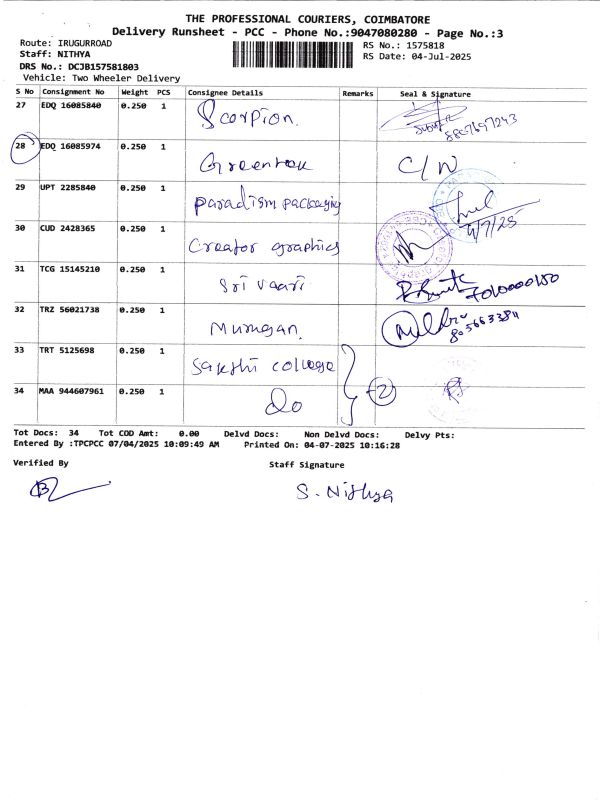 THE PROFESSIONAL COURIERS, COIMBATORE
Delivery Runsheet - PCC - Phone No.:9047080280 - Page No.:3
Route: IRUGURROAD
Staff: NITHYA
DRS No.: DCJB157581803
Vehicle: Two Wheeler Delivery
RS No.: 1575818
RS Date: 04-Jul-2025
S No Consignment No Weight PCS Consignee Details Remarks Seal & Signature
27 EDQ 16085840 0.250 1 Scorpion.
28 EDQ 16085974 0.250 1 Greentek C/N
29 UPT 2285840 0.250 1 paradism packaging 4/7/25
30 CUD 2428365 0.250 1 Creator graphics
31 TCG 15145210 0.250 1 Sri Vaari
32 TRZ 56021738 0.250 1 Murugan.
33 TRT 5125698 0.250 1 Sakthi college
34 MAA 944607961 0.250 1 Do 2
Tot Docs: 34 Tot COD Amt: 0.00 Delvd Docs: Non Delvd Docs: Delvy Pts:
Entered By :TPCPCC 07/04/2025 10:09:49 AM Printed On: 04-07-2025 10:16:28
Verified By Staff Signature
S. Nithya